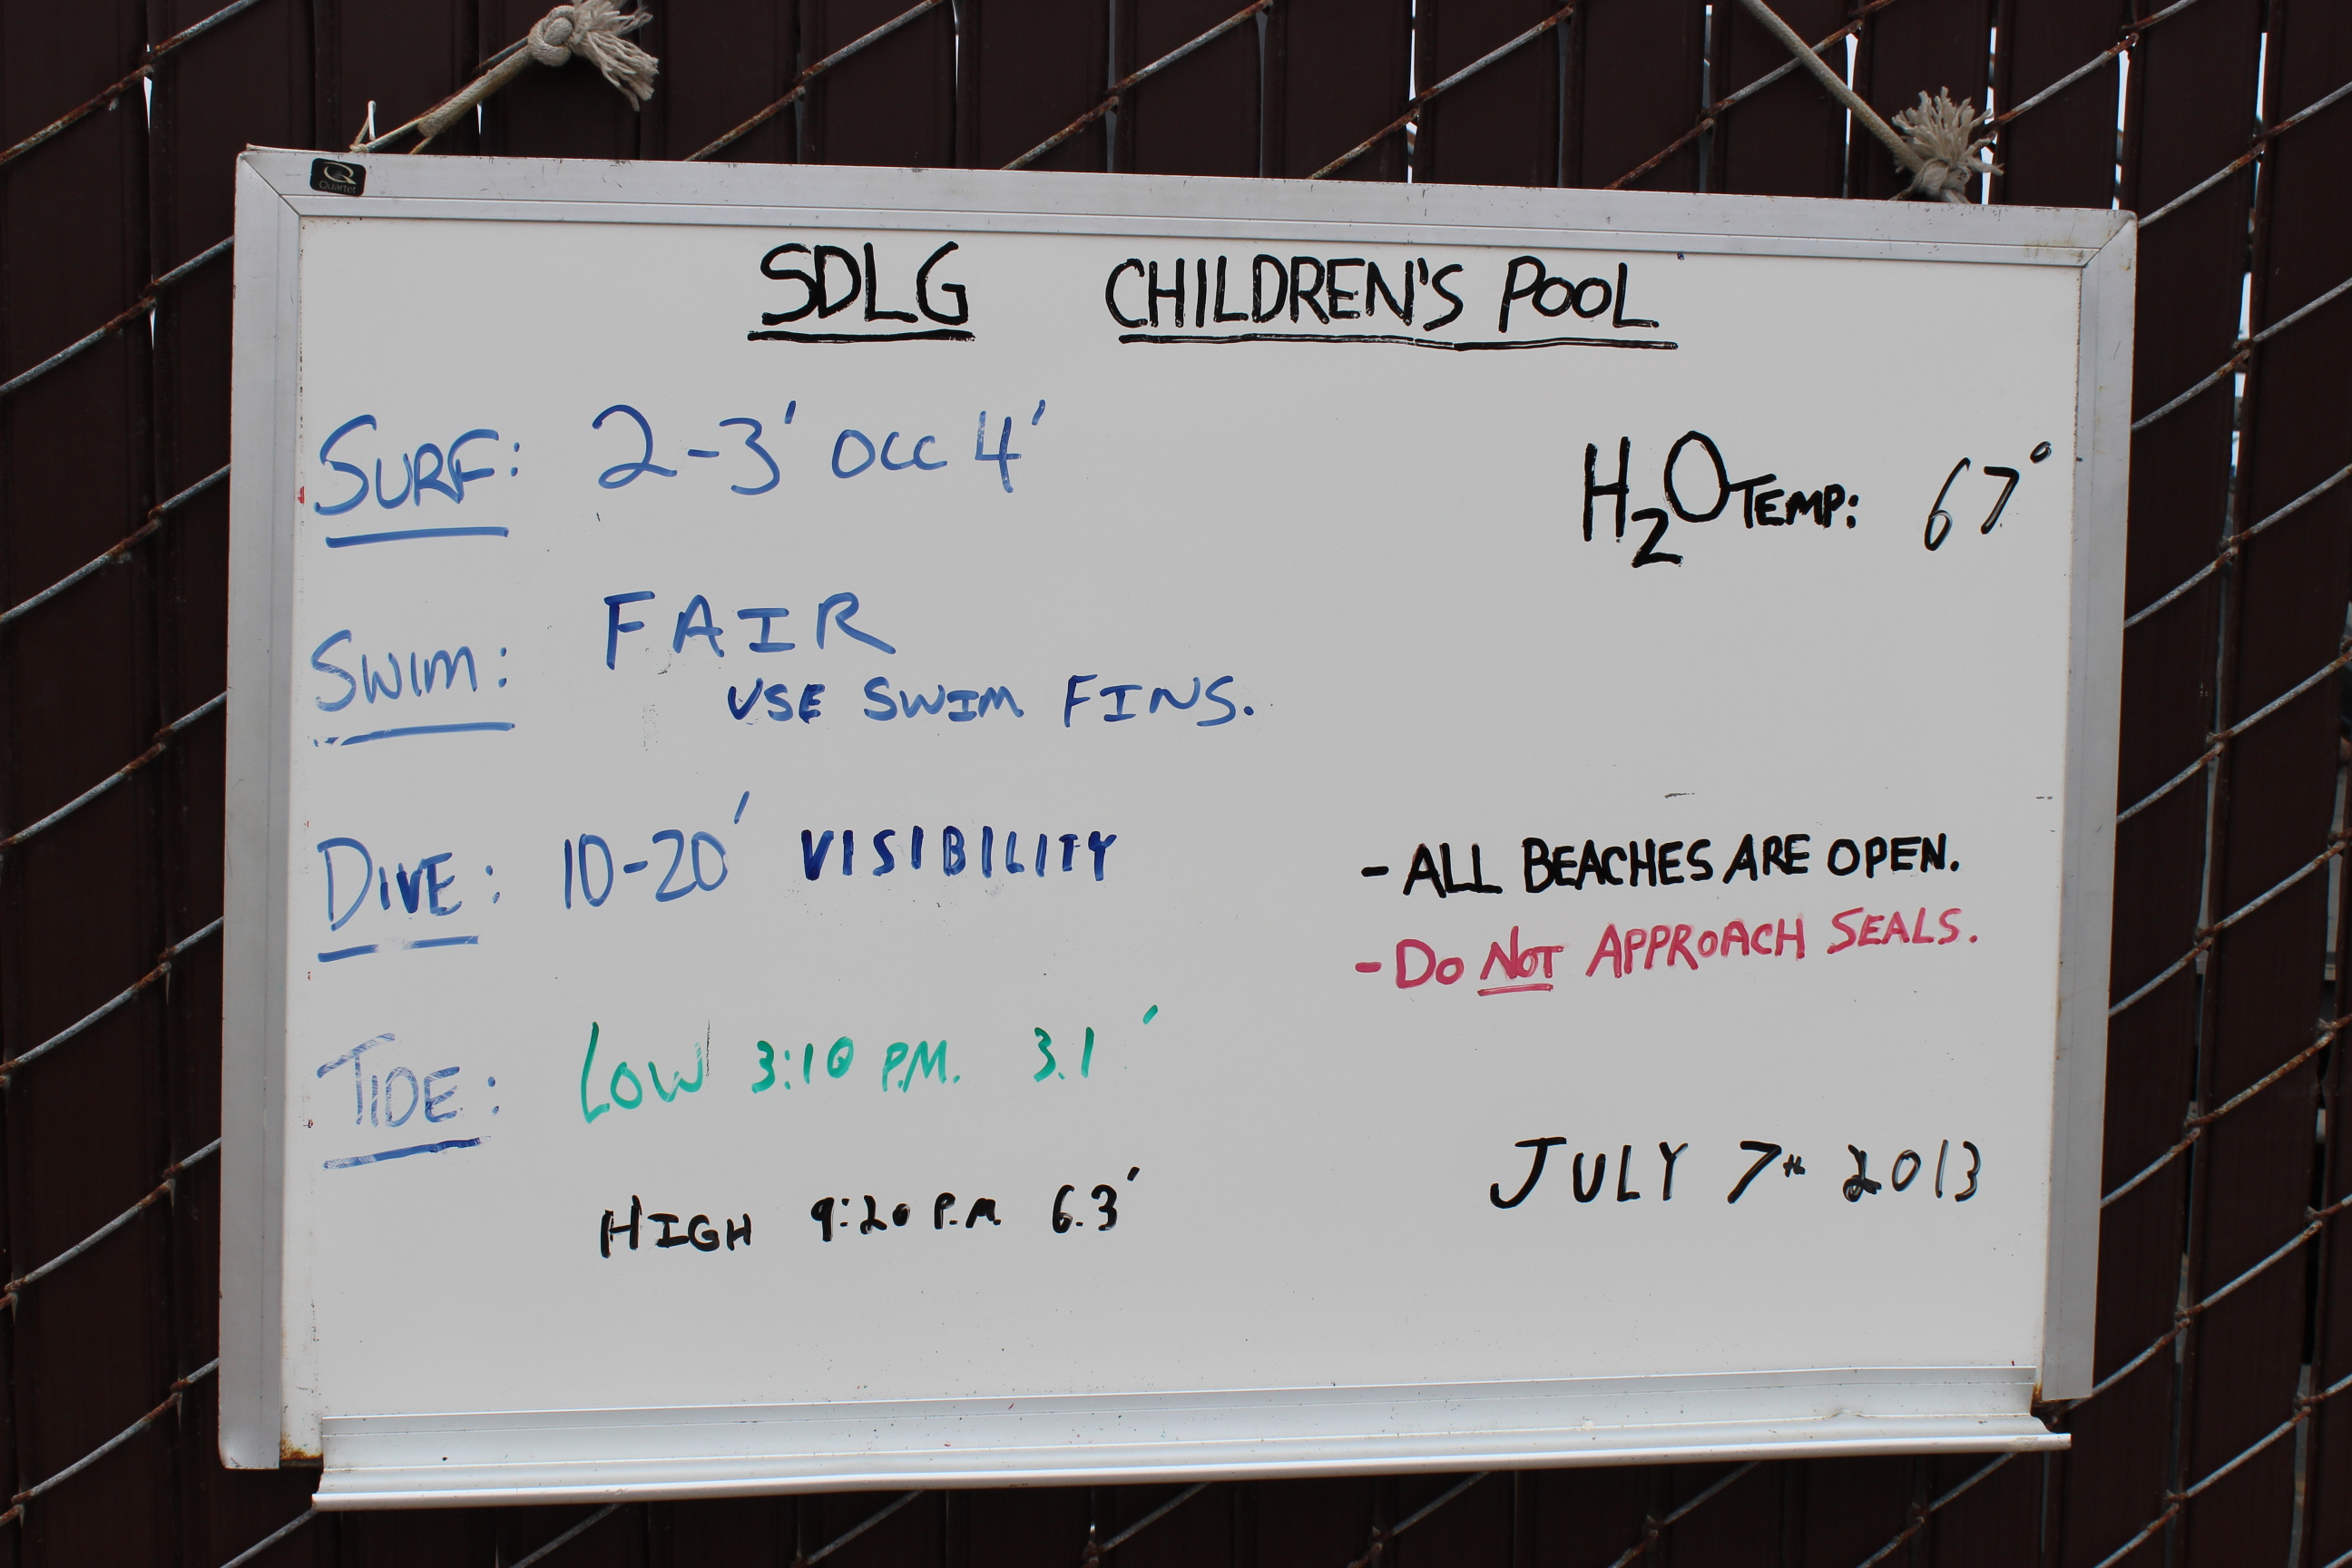 Quartet
SDLG CHILDREN'S POOL
SURF: 2-3' OCC 4'
H₂O TEMP: 67°
SWIM: FAIR
USE SWIM FINS.
DIVE: 10-20' VISIBILITY
- ALL BEACHES ARE OPEN.
- DO NOT APPROACH SEALS.
TIDE: LOW 3:10 P.M. 3.1'
HIGH 9:20 P.M. 6.3'
JULY 7th 2013